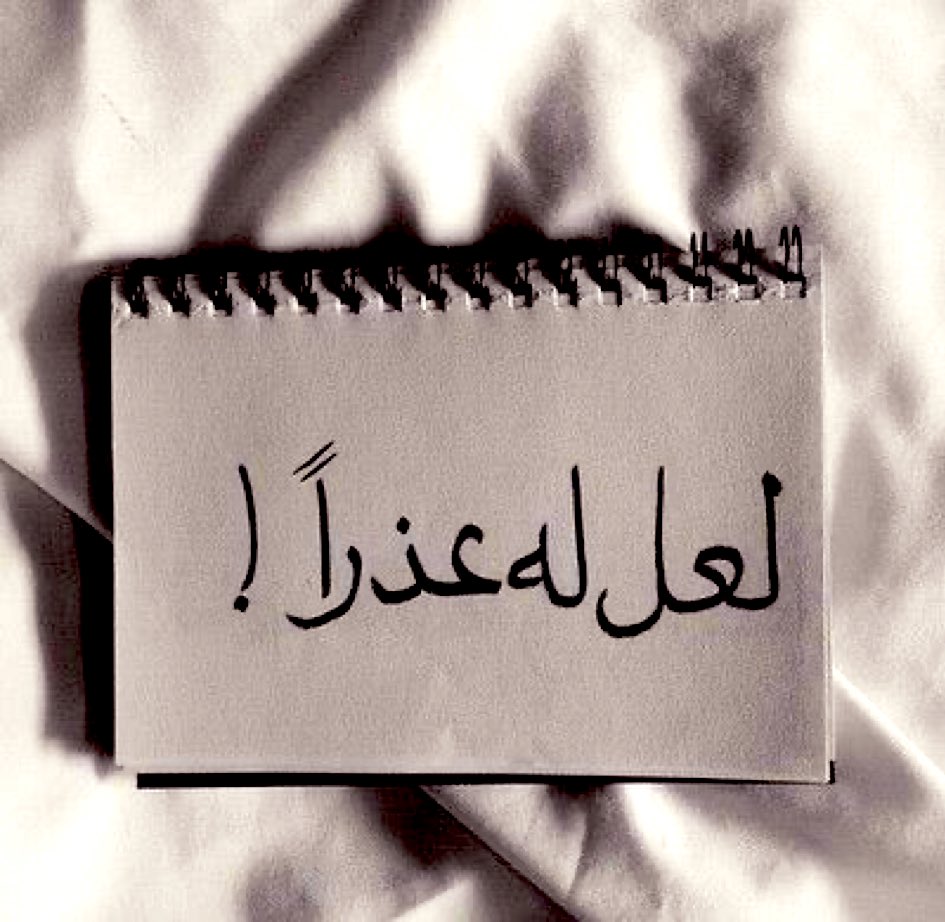 لعل له عذراً !